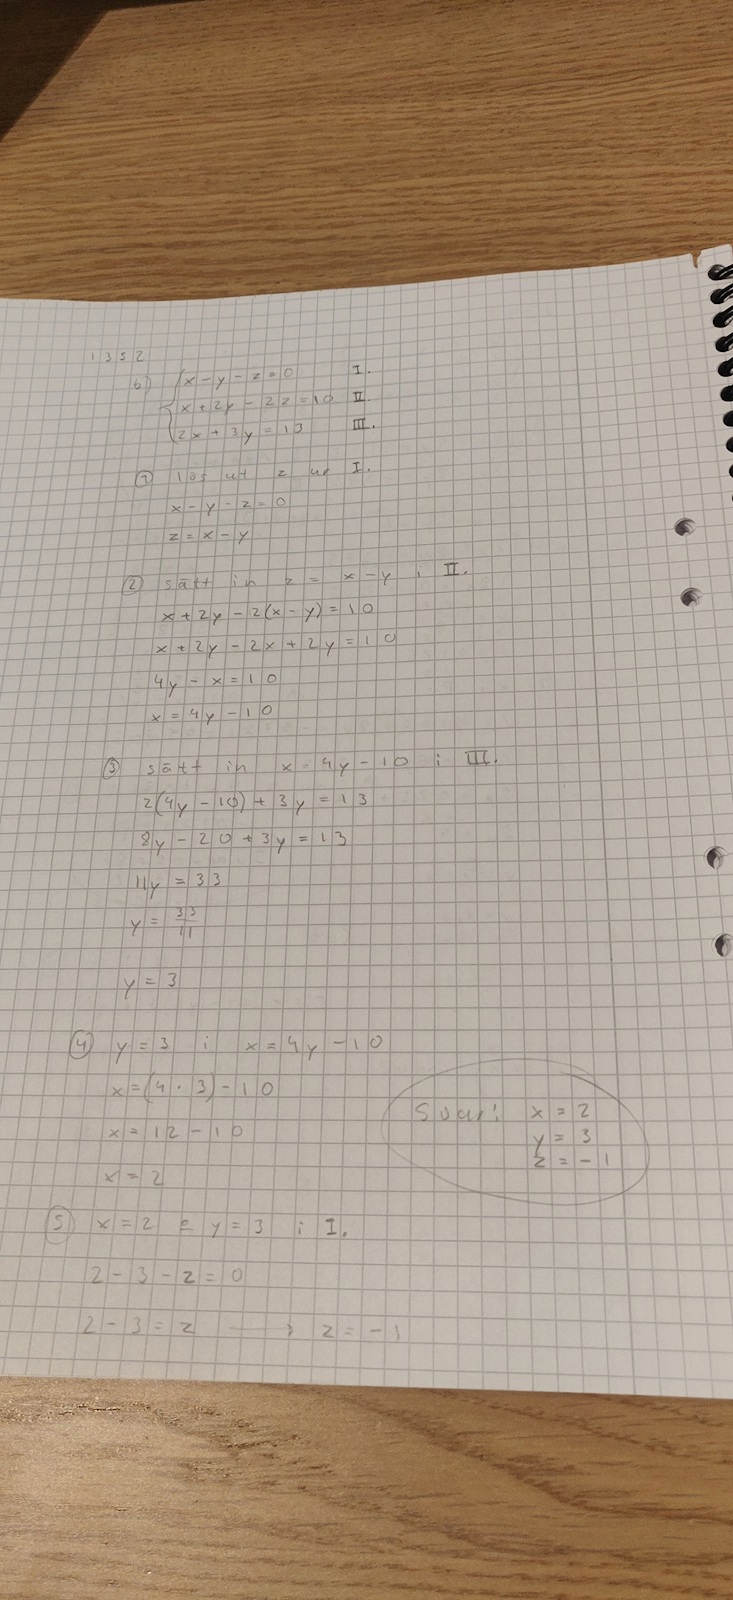 1352
b) { x - y - z = 0 I.
x + 2y - 2z = 10 II.
2x + 3y = 13 III.
① lös ut z ur I.
x - y - z = 0
z = x - y
② sätt in z = x - y i II.
x + 2y - 2(x - y) = 10
x + 2y - 2x + 2y = 10
4y - x = 10
x = 4y - 10
③ sätt in x = 4y - 10 i III.
2(4y - 10) + 3y = 13
8y - 20 + 3y = 13
11y = 33
y = 33/11
y = 3
④ y = 3 i x = 4y - 10
x = (4 · 3) - 10
x = 12 - 10
x = 2
Svar: x = 2
y = 3
z = -1
⑤ x = 2 o y = 3 i I.
2 - 3 - z = 0
2 - 3 = z → z = -1